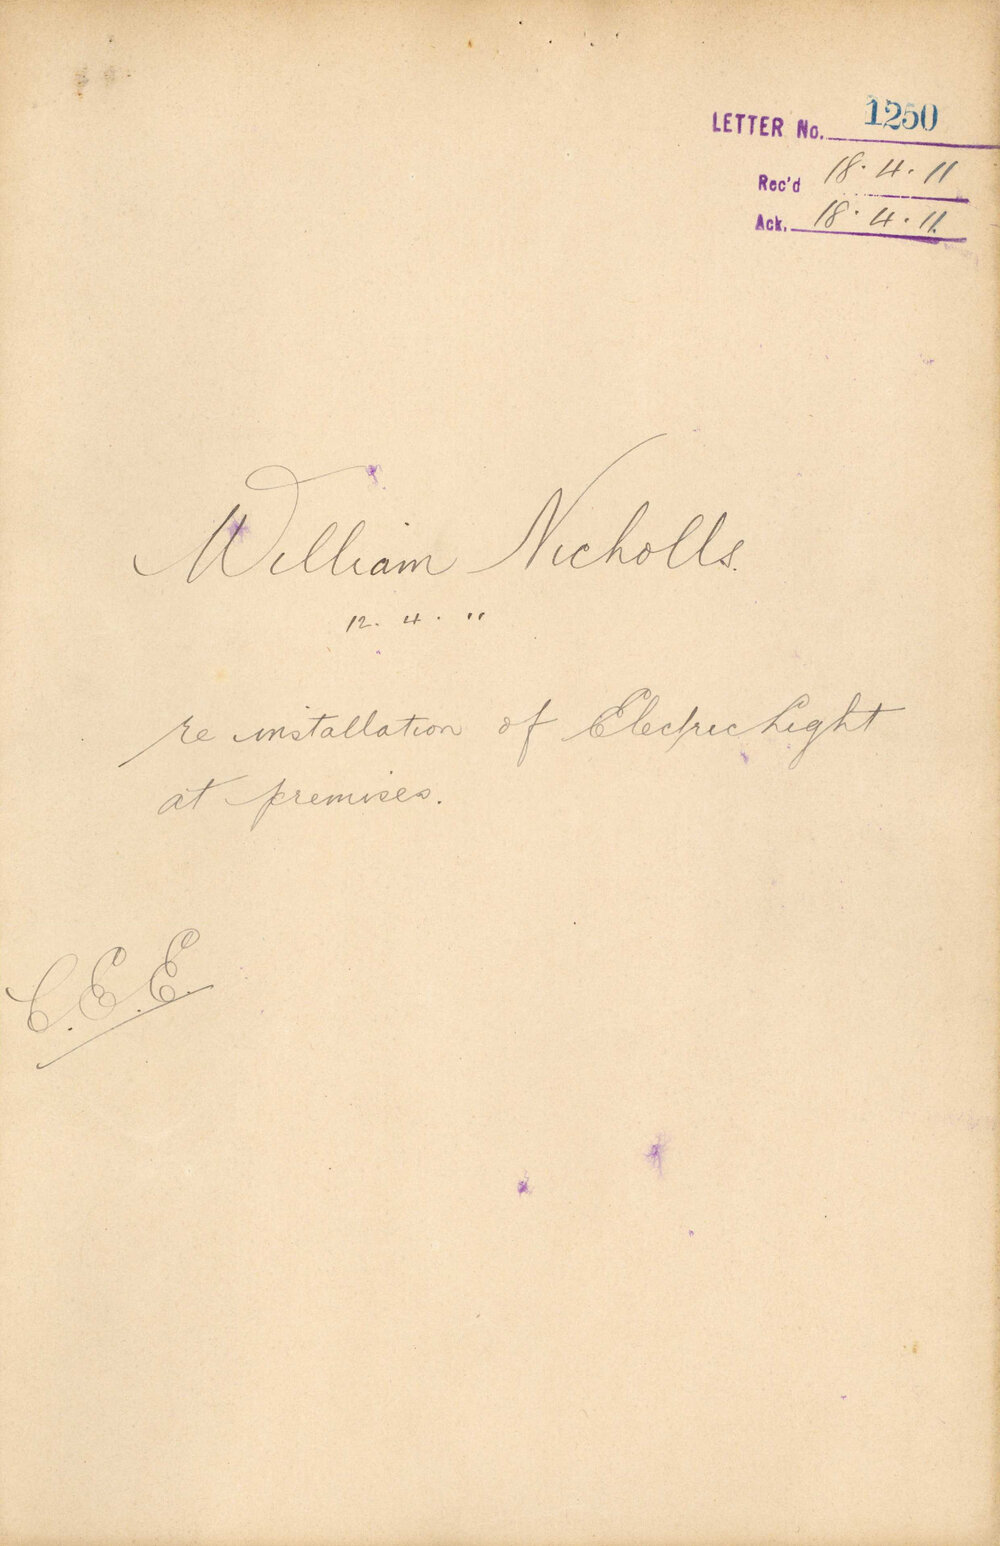 LETTER No. 1250
Rec'd 18.4.11
Ack. 18.4.11.
William Nicholls.
12. 4. "
re installation of Electric Light
at premises.
C.E.E.